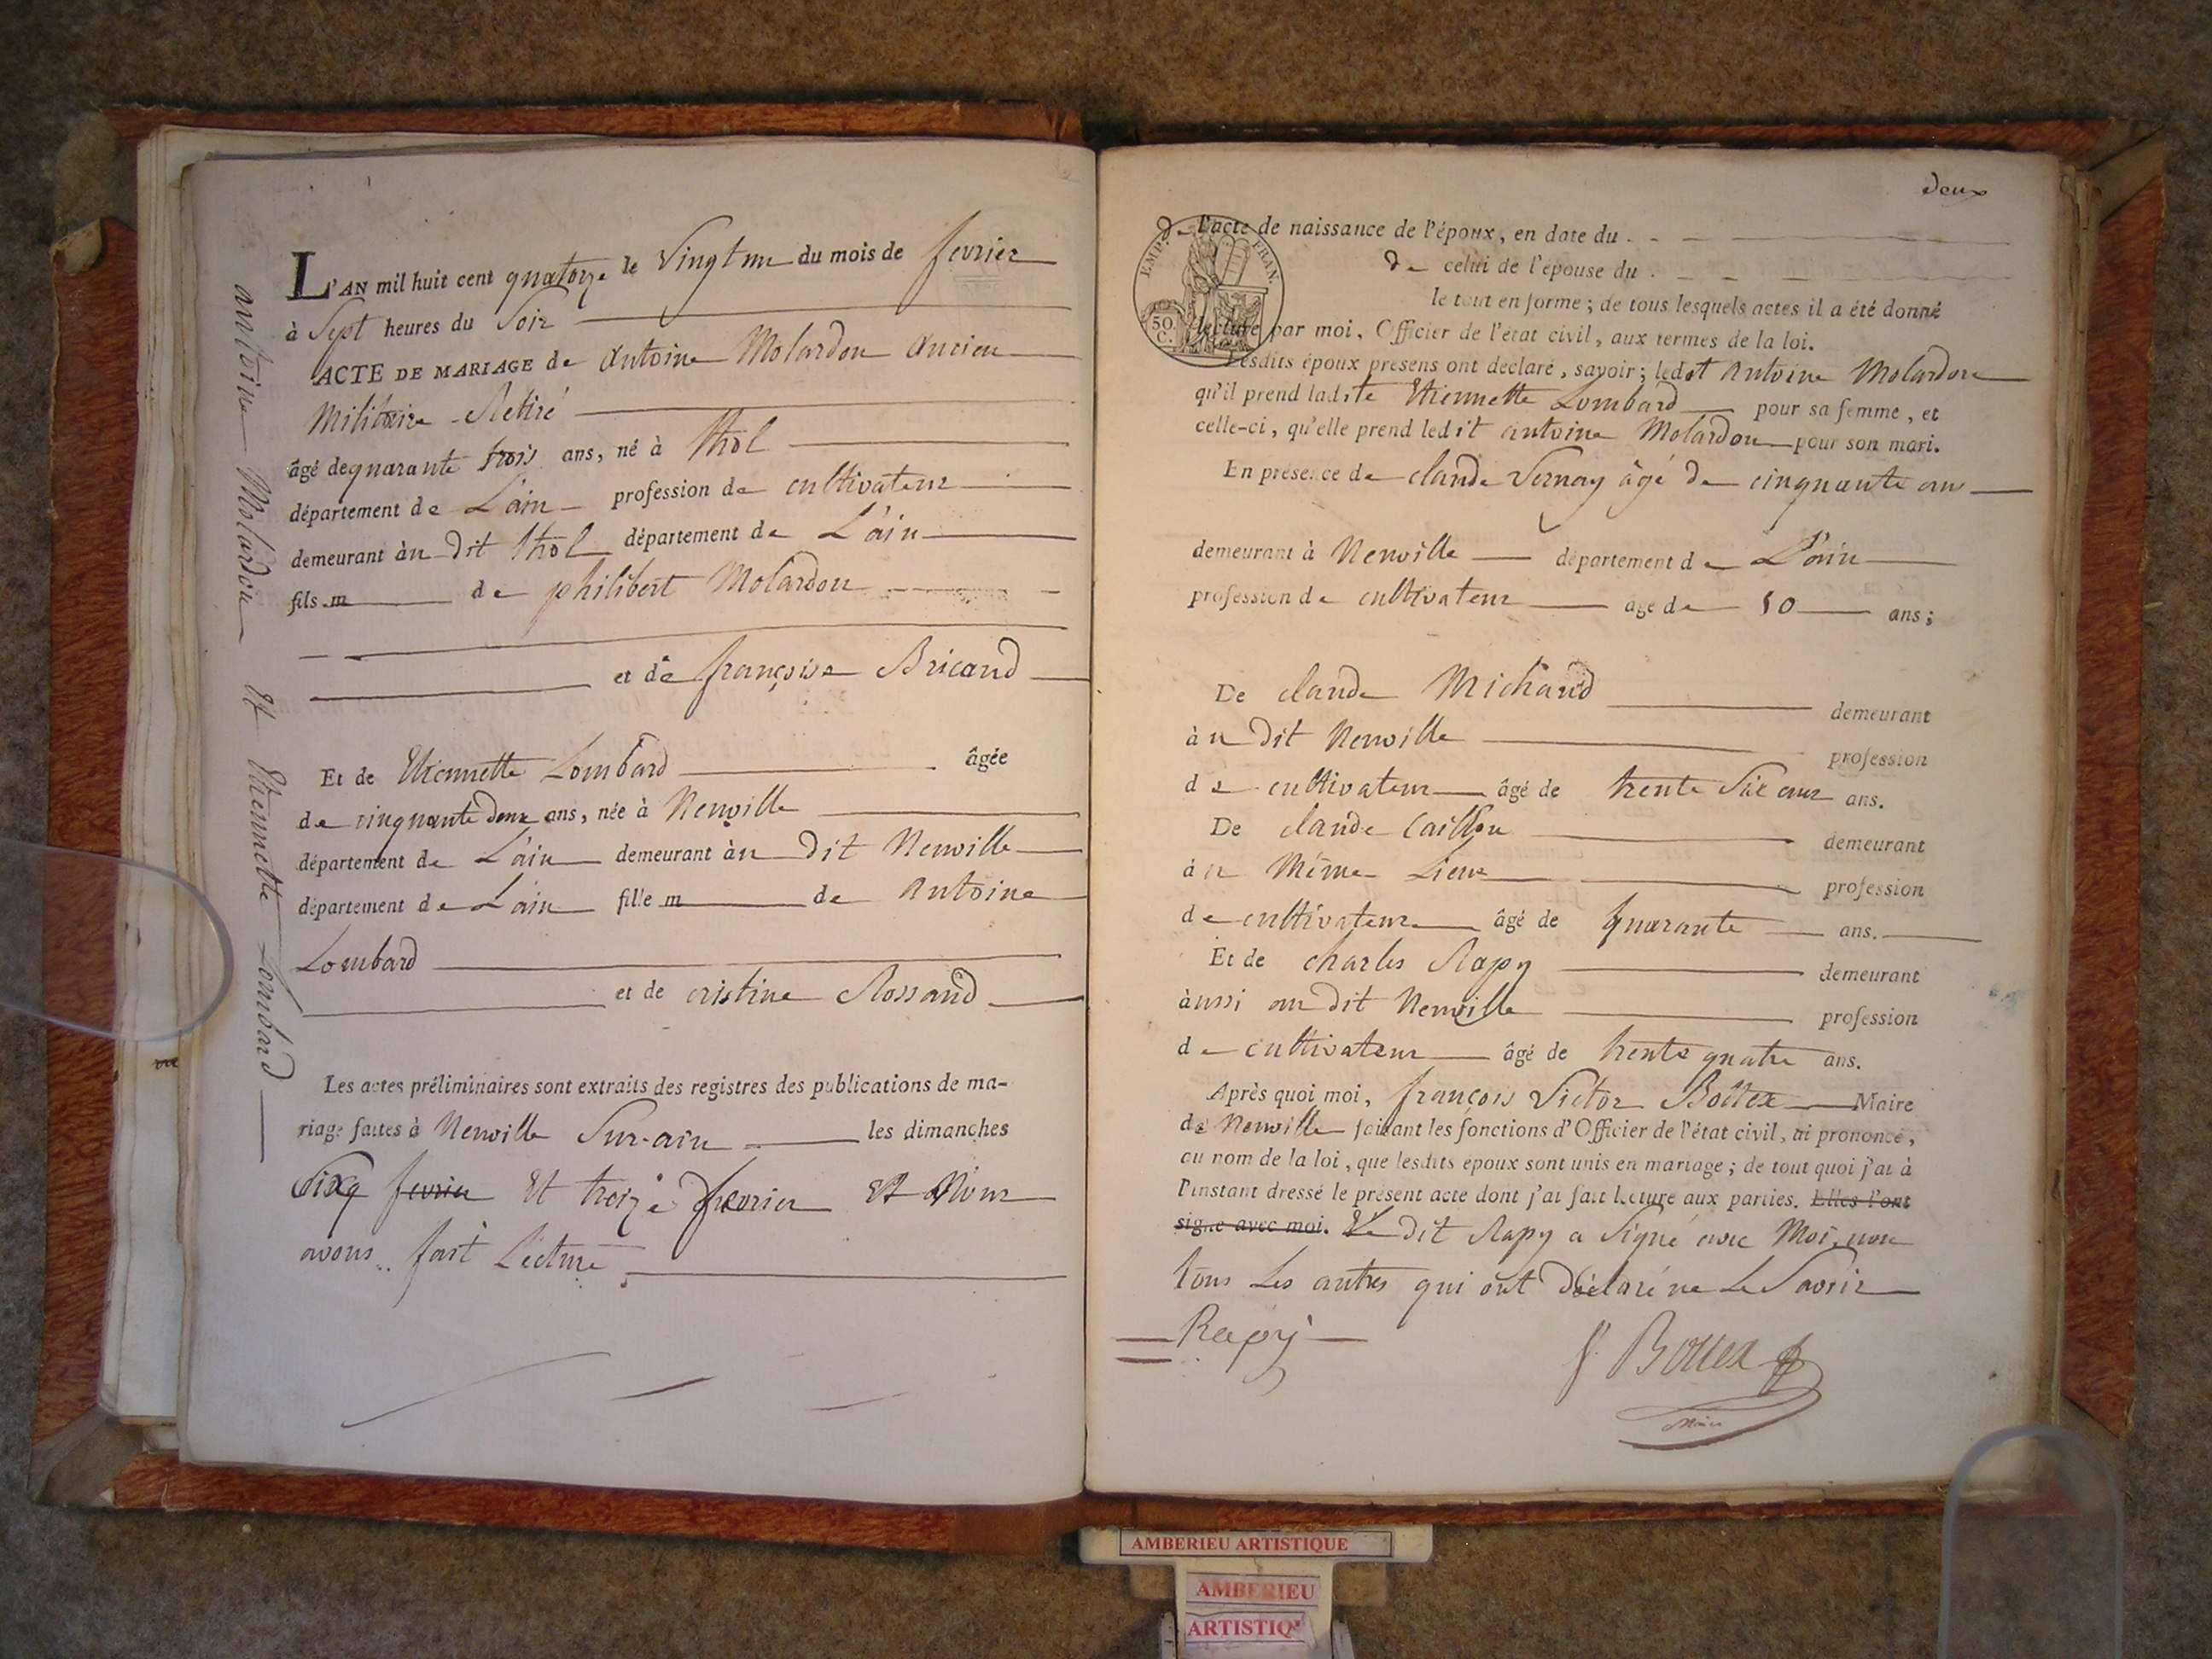 antoine Molardon Et Etiennette Lombard
L'AN mil huit cent quatorze le Vingtun du mois de fevrier
à Sept heures du Soir
ACTE DE MARIAGE de Antoine Molardon Ancien
Militaire Retiré
âgé de quarante trois ans, né à thol
département de L'ain profession de cultivateur
demeurant àu Dit thol département de L'ain
fils de philibert Molardon
et de françoise Bricand
Et de Etiennette Lombard âgée
de cinquante deux ans, née à Neuville
département de L'ain demeurant àu Dit Neuville
département de L'ain fille de Antoine
Lombard
et de cristine Rossand
Les actes préliminaires sont extraits des registres des publications de ma-
riage faites à Neuville Sur-ain les dimanches
fevrier Et treize fevrier Et Nous
avons fait Lecture
deux
de l'acte de naissance de l'époux, en date du
de celui de l'épouse du
le tout en forme; de tous lesquels actes il a été donné
lecture par moi, Officier de l'état civil, aux termes de la loi.
EMP. FRAN.
50 C.
Lesdits époux présens ont déclaré, savoir; ledit Antoine Molardon
qu'il prend ladite Etiennette Lombard pour sa femme, et
celle-ci, qu'elle prend ledit antoine Molardon pour son mari.
En présence de claude Vernay âgé de cinquante ans
demeurant à Neuville département de L'ain
profession de cultivateur âgé de 50 ans;
De claude Michaud demeurant
àu Dit Neuville profession
de cultivateur âgé de trente Six ans ans.
De claude Caillou demeurant
àu Même Lieux profession
de cultivateur âgé de quarante ans.
Et de charles Rapy demeurant
àussi au dit Neuville profession
de cultivateur âgé de trente quatre ans.
Après quoi moi, françois Victor Bottex Maire
de Neuville faisant les fonctions d'Officier de l'état civil, ai prononcé,
au nom de la loi, que lesdits époux sont unis en mariage; de tout quoi j'ai à
l'instant dressé le présent acte dont j'ai fait lecture aux parties. Elles l'ont
signé avec moi. Le Dit Rapy a Signé avec Moi, non
tous Les autres qui ont Déclaré ne Le Savoir
Rapy
f. Bottex
Maire
AMBERIEU ARTISTIQUE
AMBERIEU
ARTISTIQ